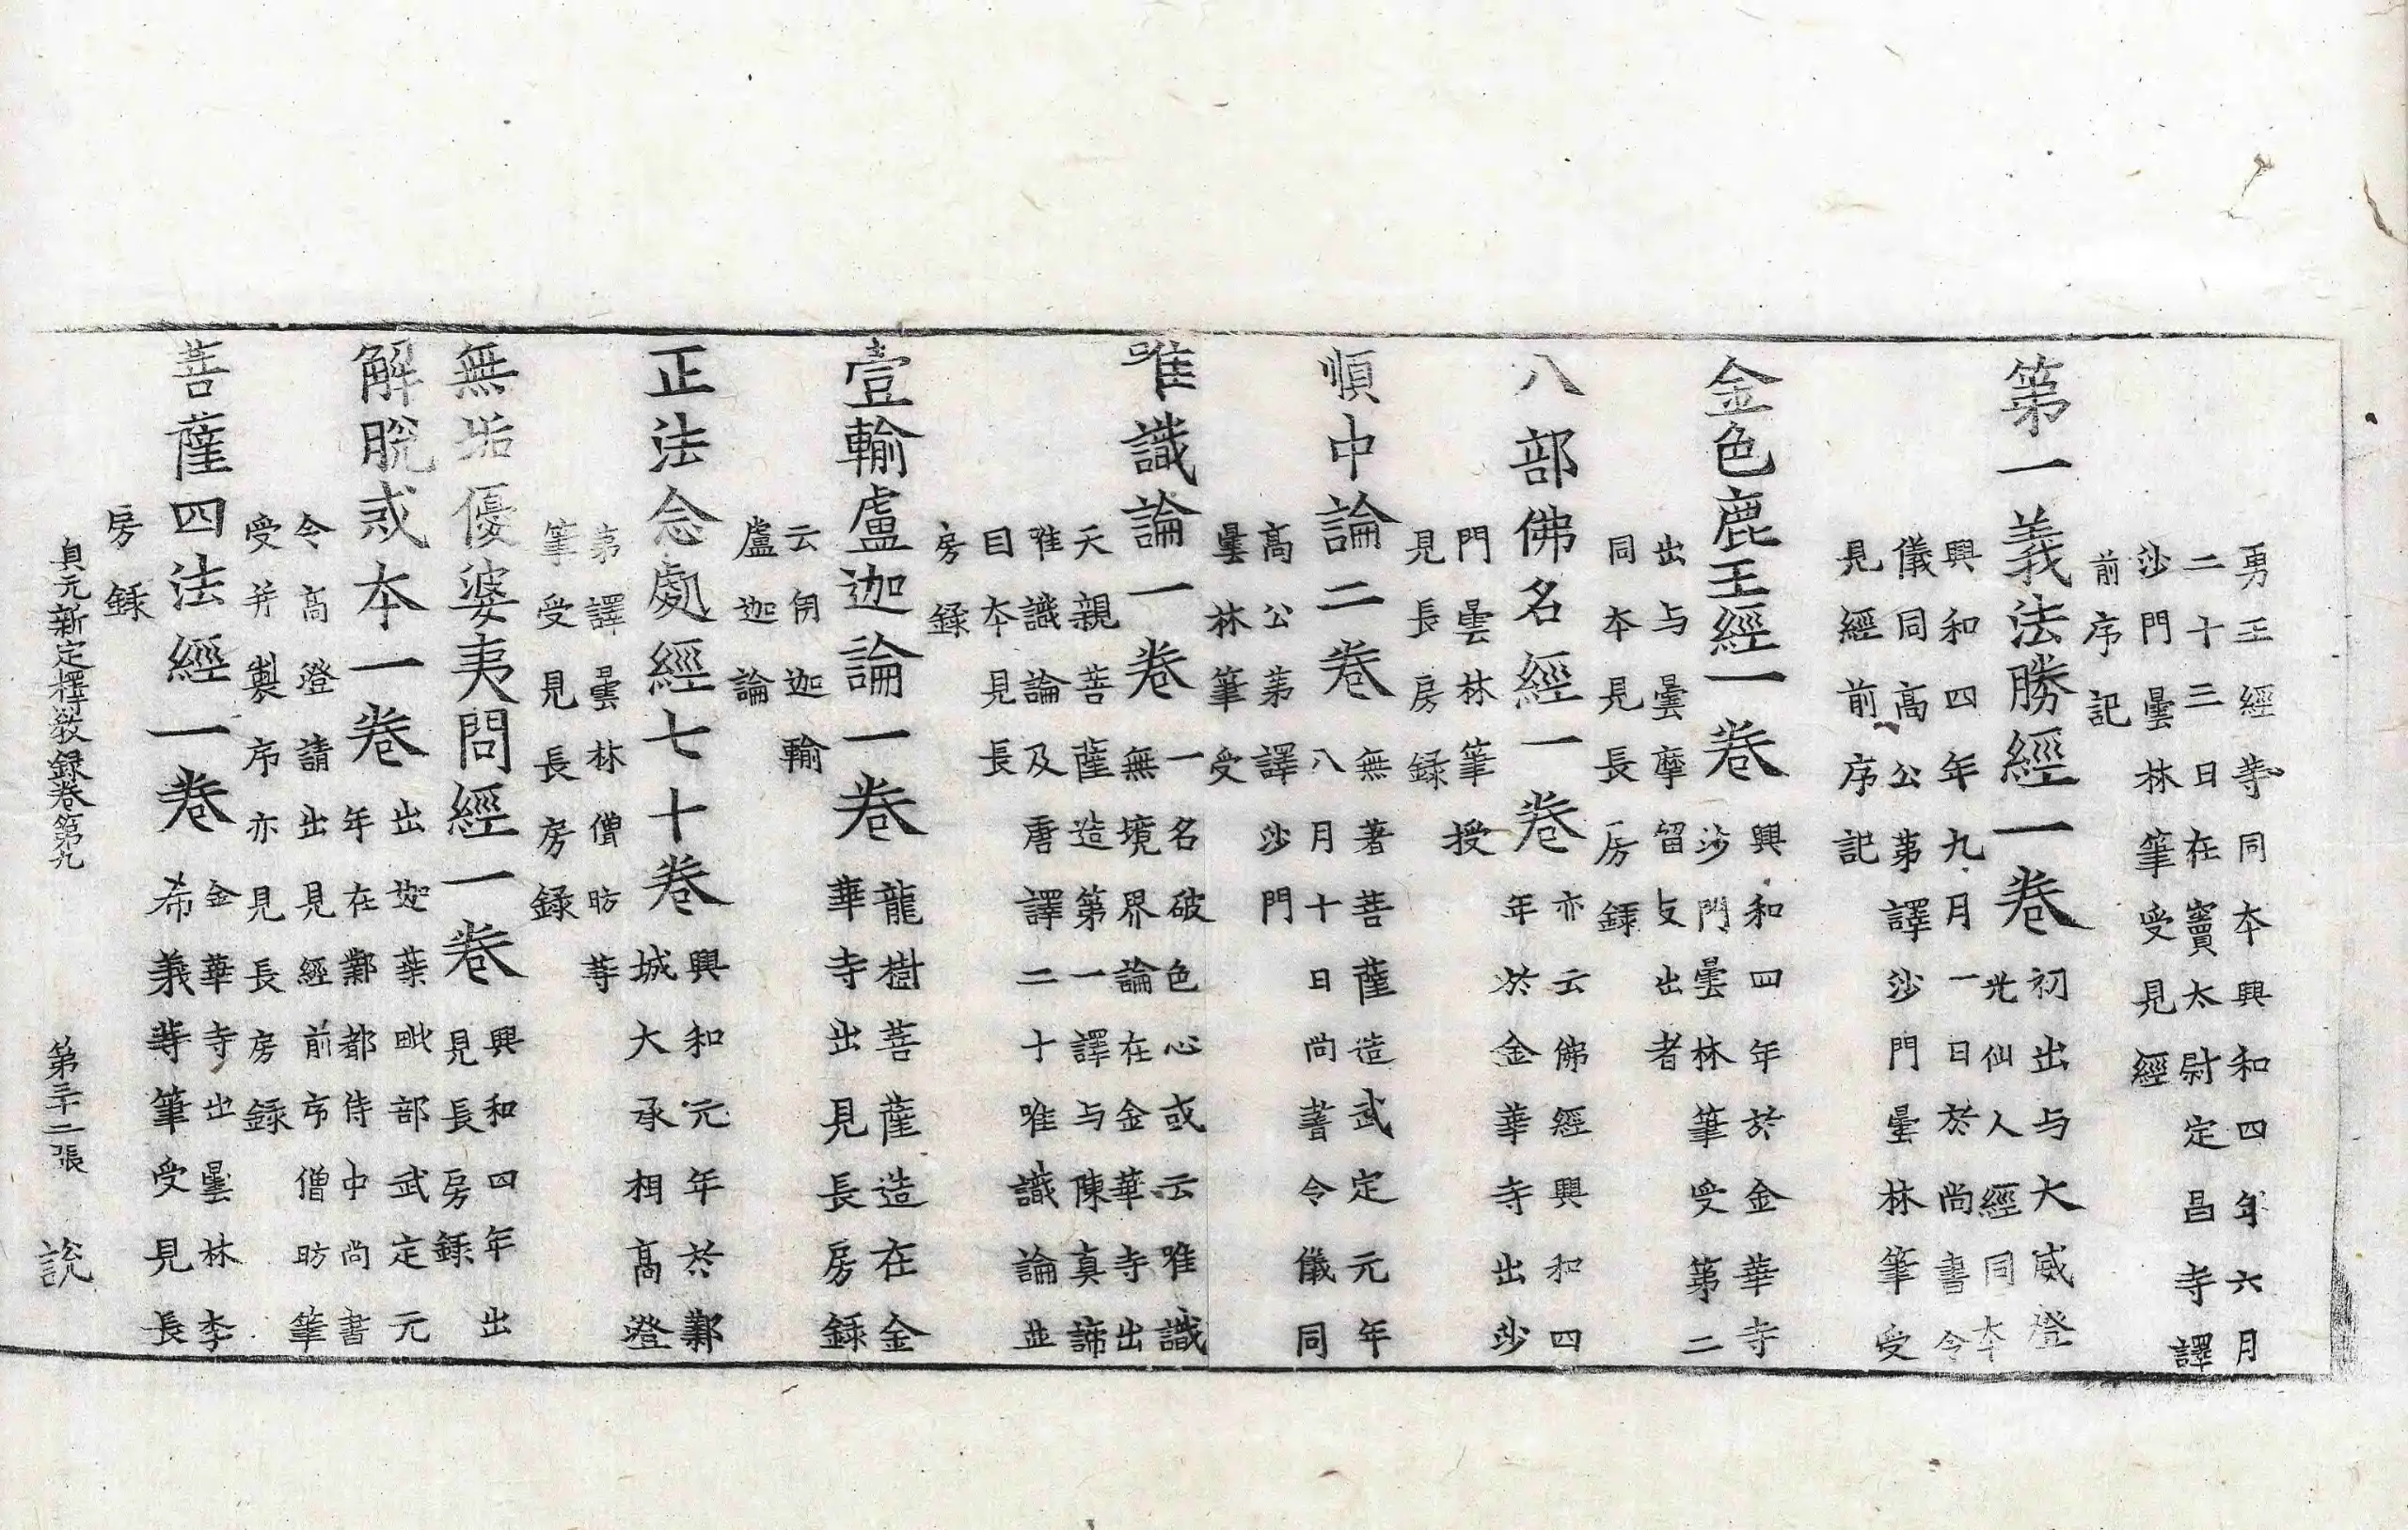 勇王經等同本興和四年六月
二十三日在竇太尉定昌寺譯
沙門曇林筆受見經
前序記
第一義法勝經一卷
初出与大威燈
光仙人經同本
興和四年九月一日於尚書令
儀同高公第譯沙門曇林筆受
見經前序記
金色鹿王經一卷
興和四年於金華寺
沙門曇林筆受第二
出与曇摩留支出者
同本見長房録
八部佛名經一卷
亦云佛經興和四
年於金華寺出沙
門曇林筆授
見長房録
順中論二卷
無著菩薩造武定元年
八月十日尚書令儀同
高公第譯沙門
曇林筆受
唯識論一卷
一名破色心或云唯識
無境界論在金華寺出
天親菩薩造第一譯与陳真諦
唯識論及唐譯二十唯識論並
目本見長
房録
壹輸盧迦論一卷
龍樹菩薩造在金
華寺出見長房録
云迦輸
盧迦論
正法念處經七十卷
興和元年於鄴
城大承相高澄
第譯曇林僧昉等
筆受見長房録
無垢優婆夷問經一卷
興和四年出
見長房録
解脫戒本一卷
出迦葉毗部武定元
年在鄴都侍中尚書
令高澄請出見經前序僧昉筆
受并製序亦見長房録
菩薩四法經一卷
金華寺出曇林李
希義等筆受見長
房録
貞元新定釋教録卷第九 第三十二張 說